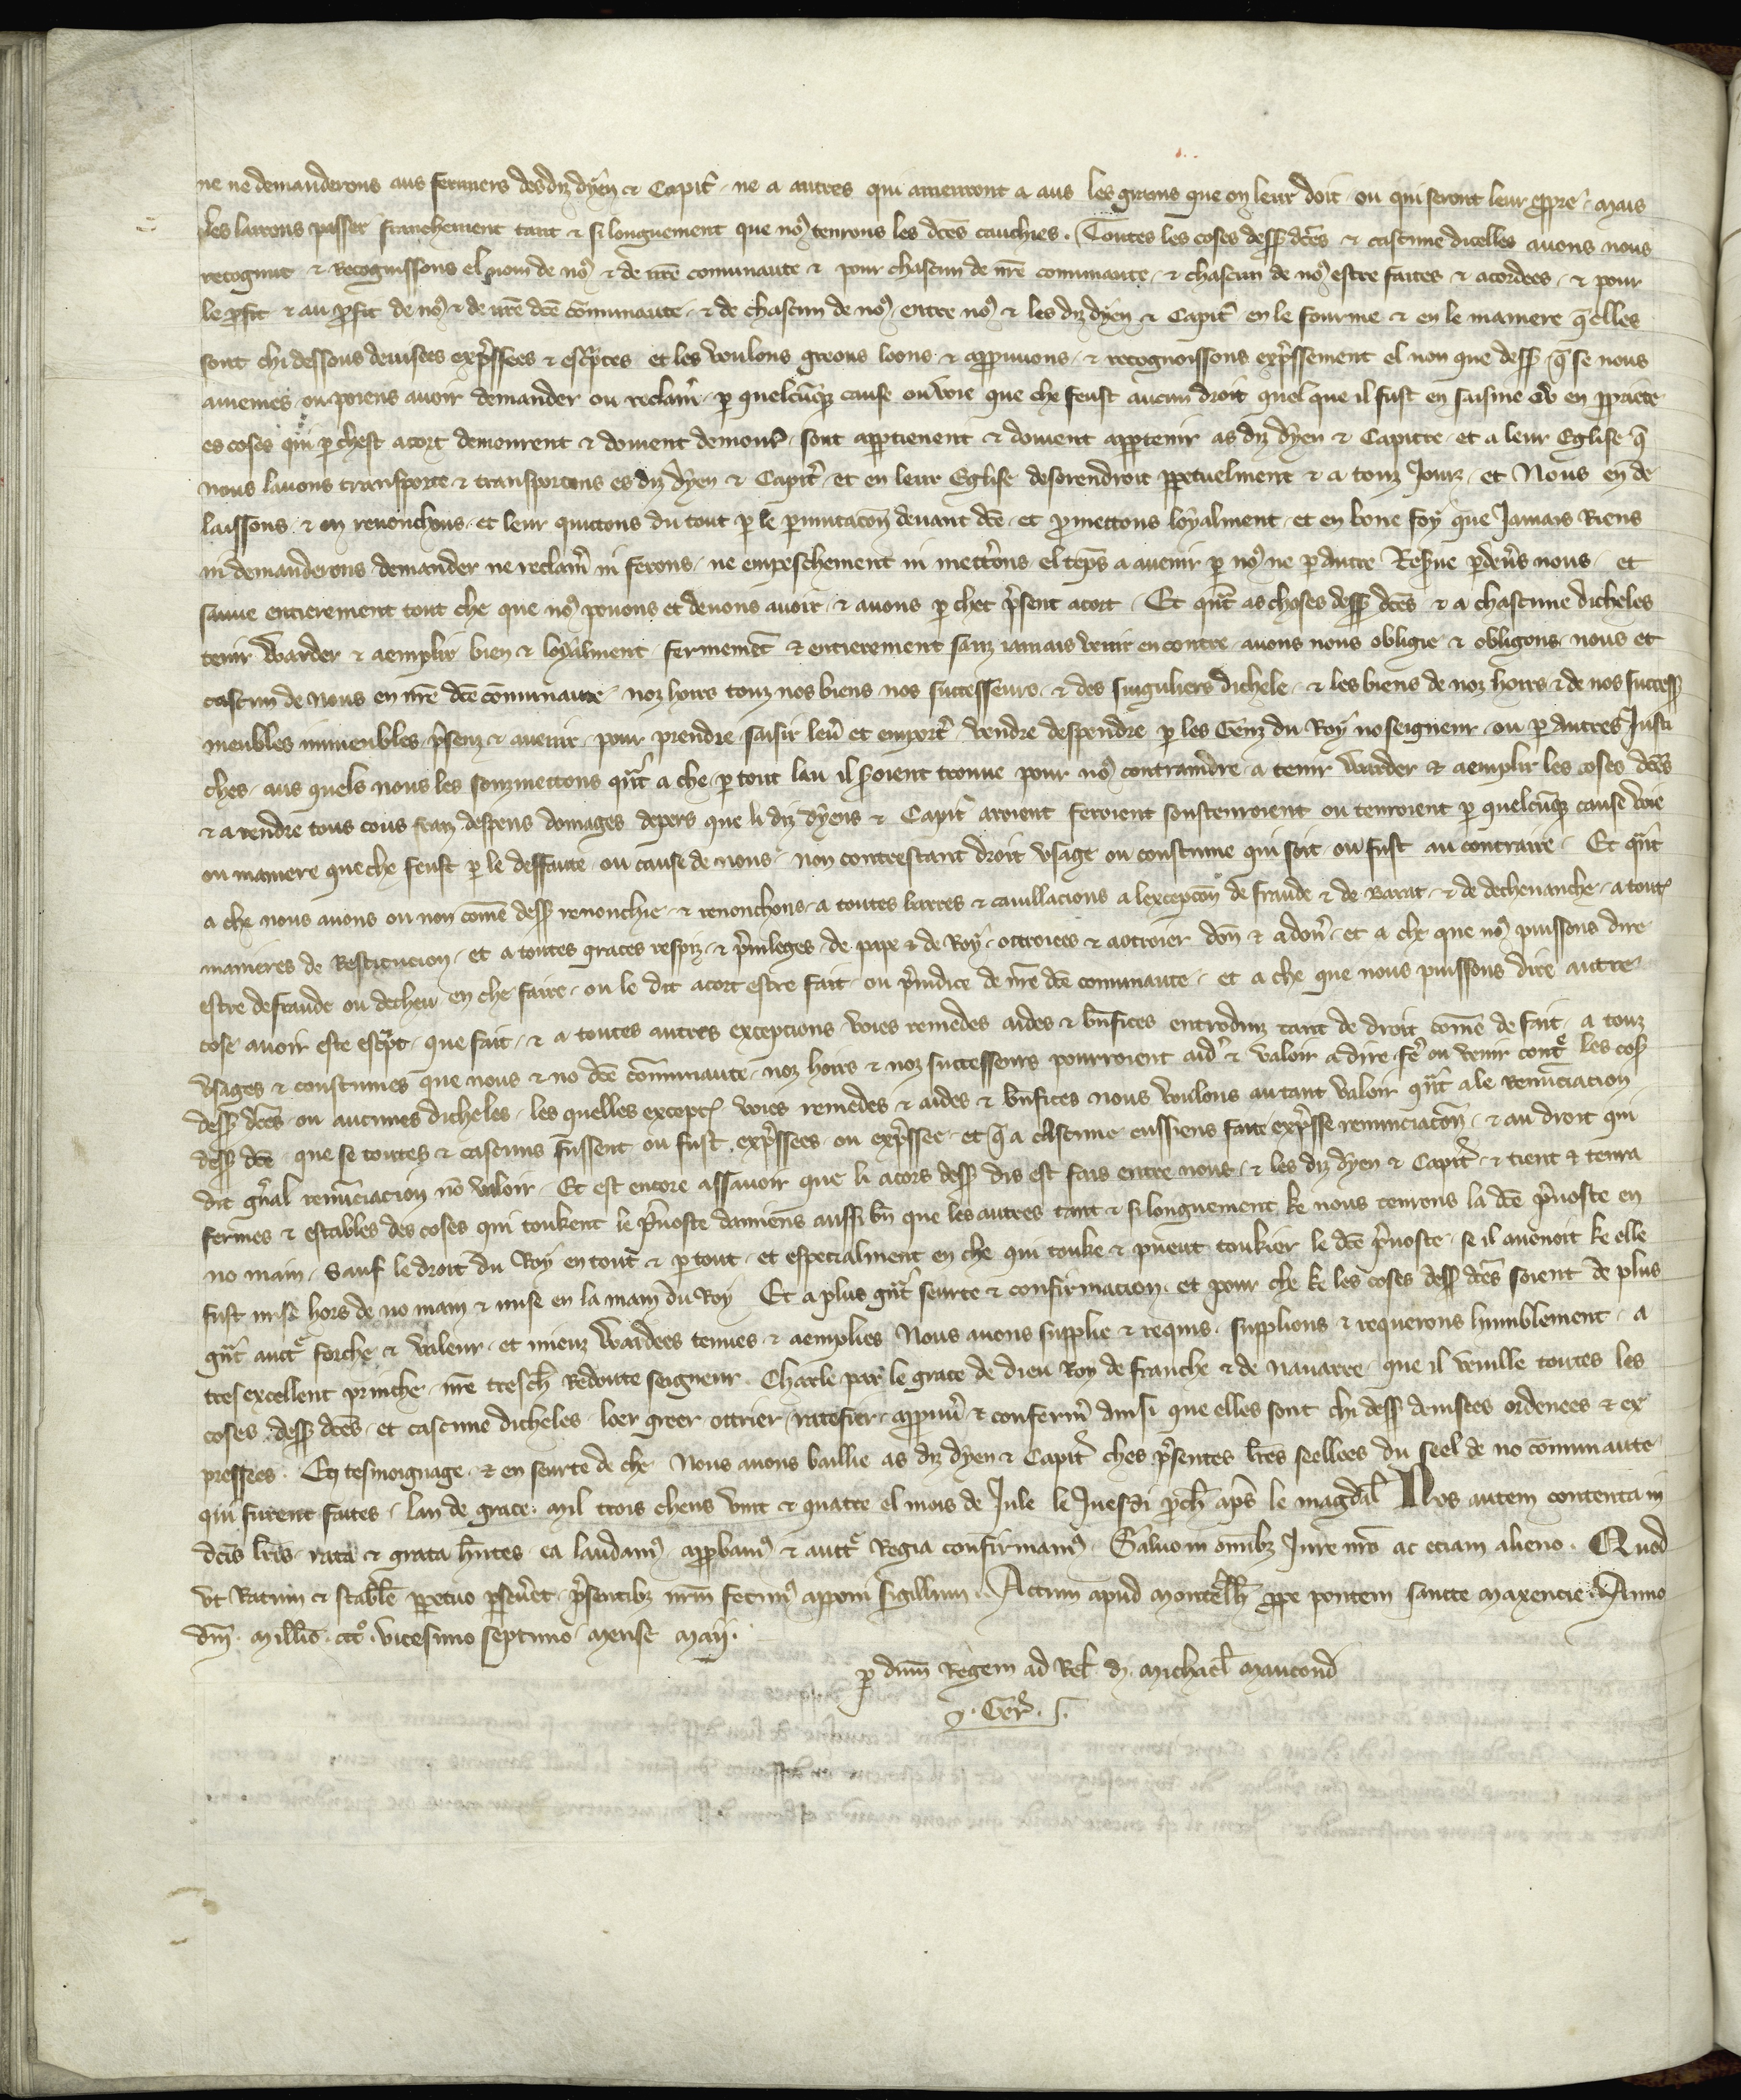 ne ne demanderons aus fermiers desdiz dÿen & Capit̾ . ne a autres qui amenront a aus les grains que on leur doit . ou qui seront leur ꝓpre . mais
les lairons passer franchement tant & si longuement que noꝰ tenrons les dc̄es cauchies . Toutes les coses dess̄ dc̄es & cascune dicelles auons nous
recognut & Recognissons el nom de noꝰ & de nr̄e comunaute & pour chascun de nr̄e comunaute . & chascun de noꝰ estre faites & acordees . & pour
le ꝓfit & au ꝓfit de noꝰ & de nr̄e dc̄e cōmunaute . & de chascun de noꝰ . entre noꝰ & les diz dÿen & Capit̾ en le fourme & en le maniere q̄ elles
sont chi dessous deuisees exp̄ssees & esc̾ptes et les voulons greons loons & appꝛuuons . & recognoissons exp̄ssement el non que dess̄ q̄ se nous
auiemes ou poiens auoir demander ou reclam̾ ꝑ quelcūq̄ cause ou voie que che feust aucun droit quel que il fust en saisine ou en ꝓpriete
es coses qui ꝑ chest acort demourent & doiuent demour̾ . sont apptienent & doiuent appꝛtenir as diz dÿen & Capitre . et a leur Eglise q̄
nous lauons transporte & transportons es diz dÿen & Capit̾ . et en leur Eglise desorendroit ꝑpetuelment & a touz Jours . et Nous en de
laissons & en renonchons . et leur quittons du tout ꝑ le ꝑmutacōn deuant dc̄e . et ꝓmettons loÿalment . et en bone foÿ que Jamais Riens
ni demanderons demander ne reclam̾ ni ferons . ne empeschement ni mettrons el tēps a auenir ꝑ noꝰ ne ꝑ autre Res̾ue ꝑ deu̾s nous . et
sauue entierement tout che que noꝰ pouons et deuons auoir . & auons ꝑ chet p̄sent acort . Et qn̄t as choses dess̄ dc̄es & a chascune dicheles
tenir Warder & aemplir bien & loÿalment fermemēt & entierement sanz iamais venir en contre auons nous obligie & obligons nous et
cascun de nous en nr̄e dc̄e cōmunaute . noz hoirs touz nos biens nos successeurs . & des singuliers dichele . & les biens de noz hoirs & de nos success̄
meubles inmeubles p̄senz & auenir . pour prendre saisir leu̾ et emport̾ vendre despendre ꝑ les Genz du Roÿ no seigneur . ou ꝑ autres Justi
ches . aus quels nous les souzmettons qn̄t a che . ꝑ tout lau il soient trouue pour noꝰ contraindre . a tenir Warder & aemplir les coses dc̄es
& a rendre tous cous fraiz despens domages depers que li diz dÿens & Capit̾ aroient feroient soustenroient ou tenroient ꝑ quelcūq̄ cause voie
ou maniere que che feust ꝑ le deffaute . ou cause de nous . non contrestant droit vsage ou coustume qui soit ou fust au contraire . Et qn̄t
a che nous auons ou non come dess̄ renonchie . & renonchons . a toutes barres & cauillacions a lexcepcōn de fraude & de Barat . & de dechenanche . a toutꝭ
manieres de Restitucion . et a toutes graces respiz & p̄uileges . de pape & de Roÿ . ottroiees & aotroier don̄ & a don̾ . et a che que noꝰ puissons dire
estre defraude ou decheu en che faire . ou le dit acort estre fait ou p̄iudice de nr̄e dc̄e comunaute . et a che que nous puissons dire autre
cose auoir este esc̾pt . que fait . & a toutes autres excepcions voies remedes aides & bn̄fices entroduiz tant de droit come de fait . a touz
vsages & coustumes que nous & no dc̄e cōmunaute . noz hoirs & noz successeurs pourroient aid̾ & valoir a dire fe̾ ou venir cont̾ les cos̄
dess̄ dc̄es . ou aucunes dicheles . les quelles exceptꝭ voies remedes & aides & bn̄fices nous voulons au tant valoir qn̄t a le Renūciacion
dess̄ dc̄e que se toutes & cascuns fussent ou fust exp̄ssees . ou exp̄ssee . et q̄ a cascune eussiens faite exp̄sse renunciacōn . & au droit qui
dit gn̄al renūciacion nō valoir . Et est encore assauoir que li acors dess̄ dis est fais entre nous . & les diz dÿen & Capit̾ . & tient & tenra
fermes & estables des coses qui toukent le p̄uoste damiens aussi bn̄ que les autres tant & si longuement ke nous tenrons la dc̄e p̄uoste en
no main . Sauf le droit du Roÿ en tout & ꝑ tout . et especialment en che qui touke & pueut toukier le dc̄e p̄uoste . se il auenoit ke elle
fust mise hors de no main & mise en la main du Roÿ Et a plus gn̄t seurte & confirmacion . et pour che ke les coses dess̄ dc̄es soient de plus
gn̄t auct̾ forche & valeur . et mieuz Wardees tenues & aemplies Nous auens supplie & requis . supplions & requerons humblement . a
tres excellent prinche . nr̄e tresch̾ Redoute seigneur . Charle par le grace de dieu Roÿ de franche & de nauarre . que il vuille toutes les
coses dess̄ dc̄es . et cascune dicheles . loer greer ottrier ratefier appꝛuu̾ & conferm̾ ainsi que elles sont chi dess̄ deuisees ordenees & ex
pressees . En tesmoignage . & en seurte de che Nous auons baillie as diz dÿen & Capit̾ ches p̄sentes lr̄es seellees du seel de no cōmunaute
qui furent faites . lan de grace . mil trois chens vint & quatre el mois de Jule le Juesdi ꝓch̾ ap̄s le magdal̾ Nos autem contenta in
dc̄is lr̄is . rata & grata hn̄tes . ea laudamꝰ . appꝛbamꝰ & auct̾ Regia confirmamꝰ . Saluo in om̄ibꝫ Jure nr̄o ac eciam alieno . Quod
vt Ratum & stabl̄e ꝑpetuo ꝑseu̾et . p̄sentibꝫ nr̄m fecimꝰ apponi sigillum . Actum apud montell̄ ꝓpe pontem sancte maxencie . Anno
dn̄i . mill̄io . ccc°. vicesimo septimo . mense maij .
ꝑ dn̄m Regem ad Rel̄ . d . michael̄ maucond̄
J . Ger̾ .